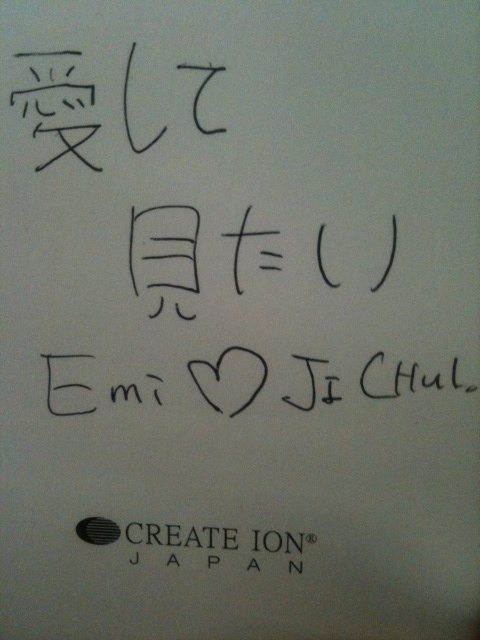 愛して
見たい
Emi ♡ JI CHUL.
CREATE ION®
JAPAN